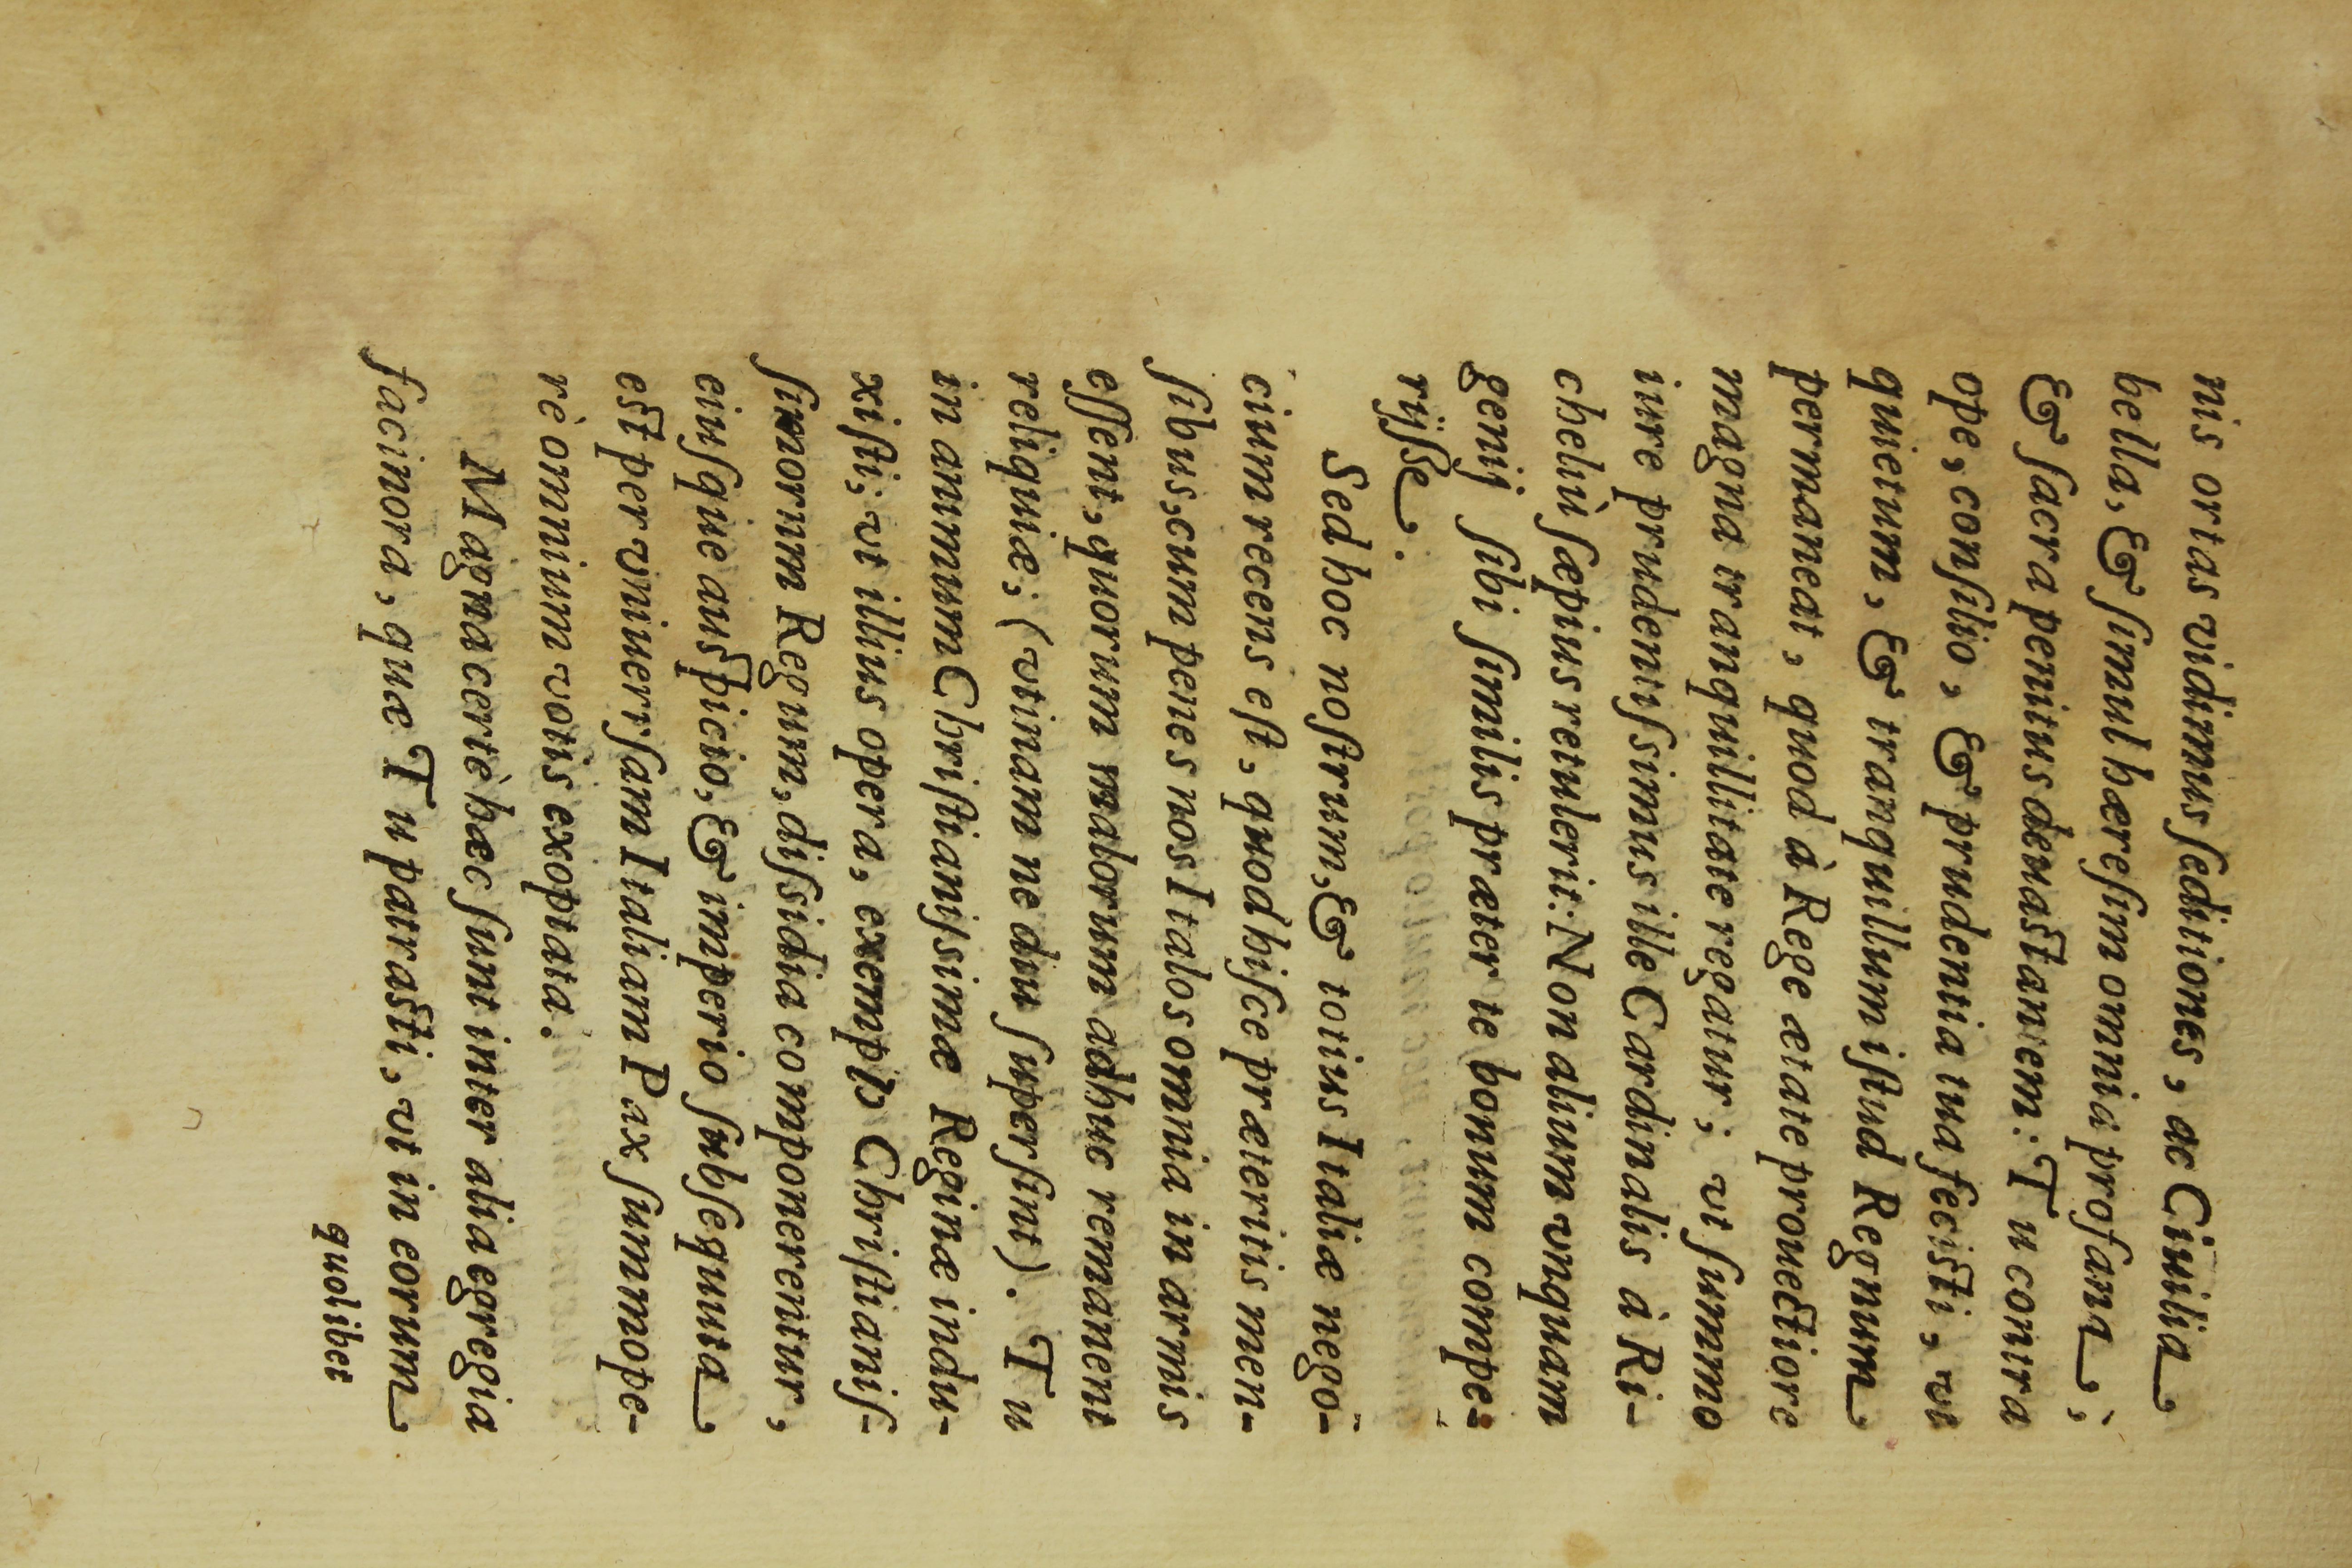 nis ortas vidimus ſeditiones, ac Ciuilia
bella, & ſimul hæreſim omnia profana,
& ſacra penitus deuaſtantem: Tu contra
ope, conſilio, & prudentia tua feciſti, vt
quietum, & tranquillum iſtud Regnum
permaneat, quod à Rege ætate prouectiore
magna tranquillitate regatur; vt ſummo
iure prudentiſsimus ille Cardinalis à Ri-
cheliù ſæpius retulerit: Non alium vnquam
genij ſibi ſimilis præter te bonum compe-
rijſſe.
Sed hoc noſtrum, & totius Italiæ nego-
cium recens eſt, quod hiſce præteritis men-
ſibus, cum penes nos Italos omnia in armis
eſſent, quorum malorum adhuc remanent
reliquiæ; (vtinam ne diu ſuperſint). Tu
in animum Chriſtianiſsimæ Reginæ indu-
xiſti; vt illius opera, exemplo Chriſtianiſ-
ſimorum Regum, diſsidia componerentur,
eiuſque auſpicio, & imperio ſubſequuta
eſt per vniuerſam Italiam Pax ſummope-
rè omnium votis exoptata.
Magna certè hæc ſunt inter alia egregia
facinora, quæ Tu patraſti, vt in eorum
quolibet